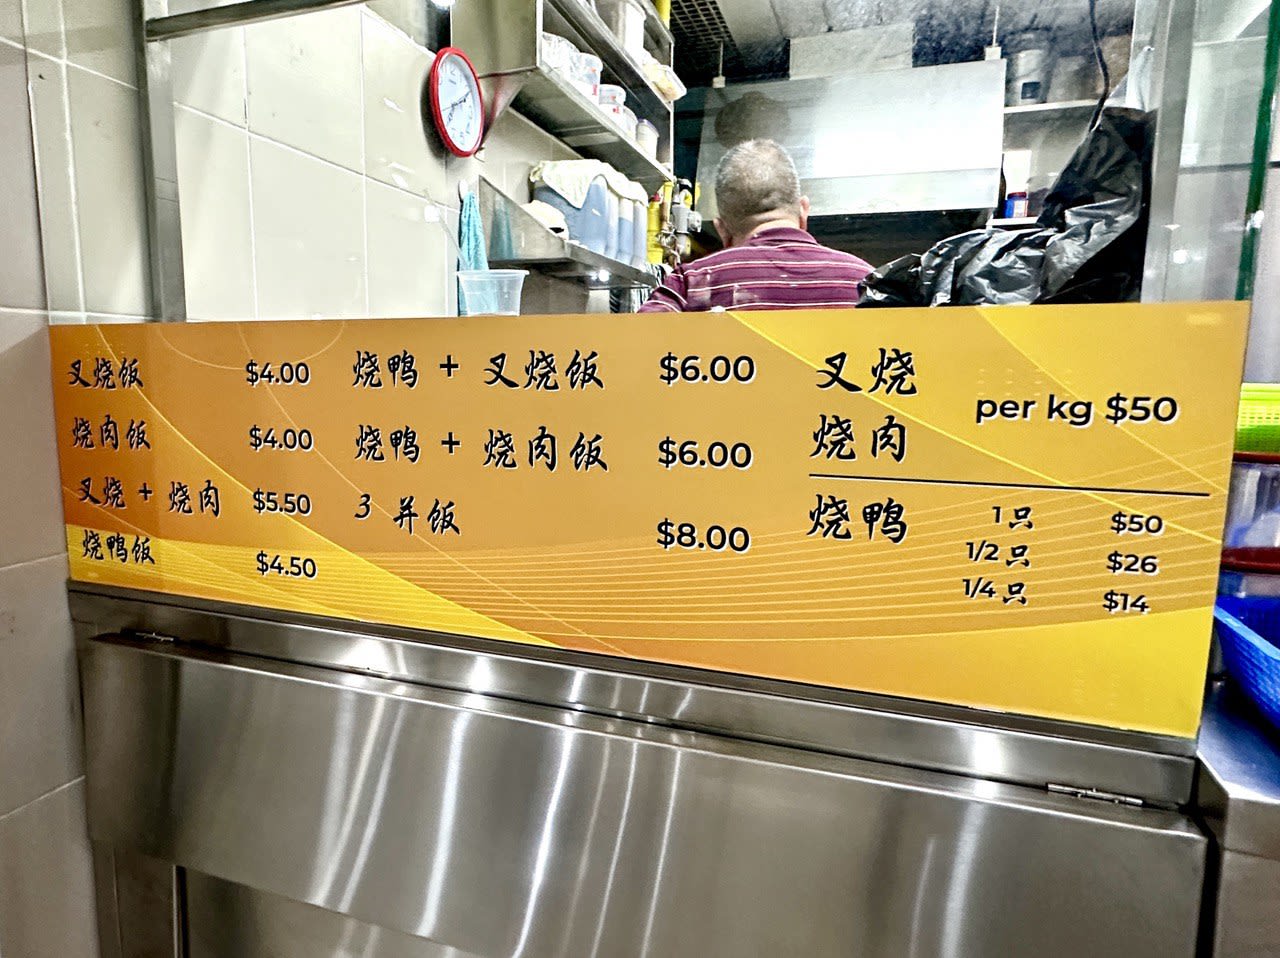 叉烧饭 $4.00
烧肉饭 $4.00
叉烧 + 烧肉 $5.50
烧鸭饭 $4.50
烧鸭 + 叉烧饭 $6.00
烧鸭 + 烧肉饭 $6.00
3 并饭 $8.00
叉烧
烧肉
per kg $50
烧鸭 1只 $50
1/2只 $26
1/4只 $14